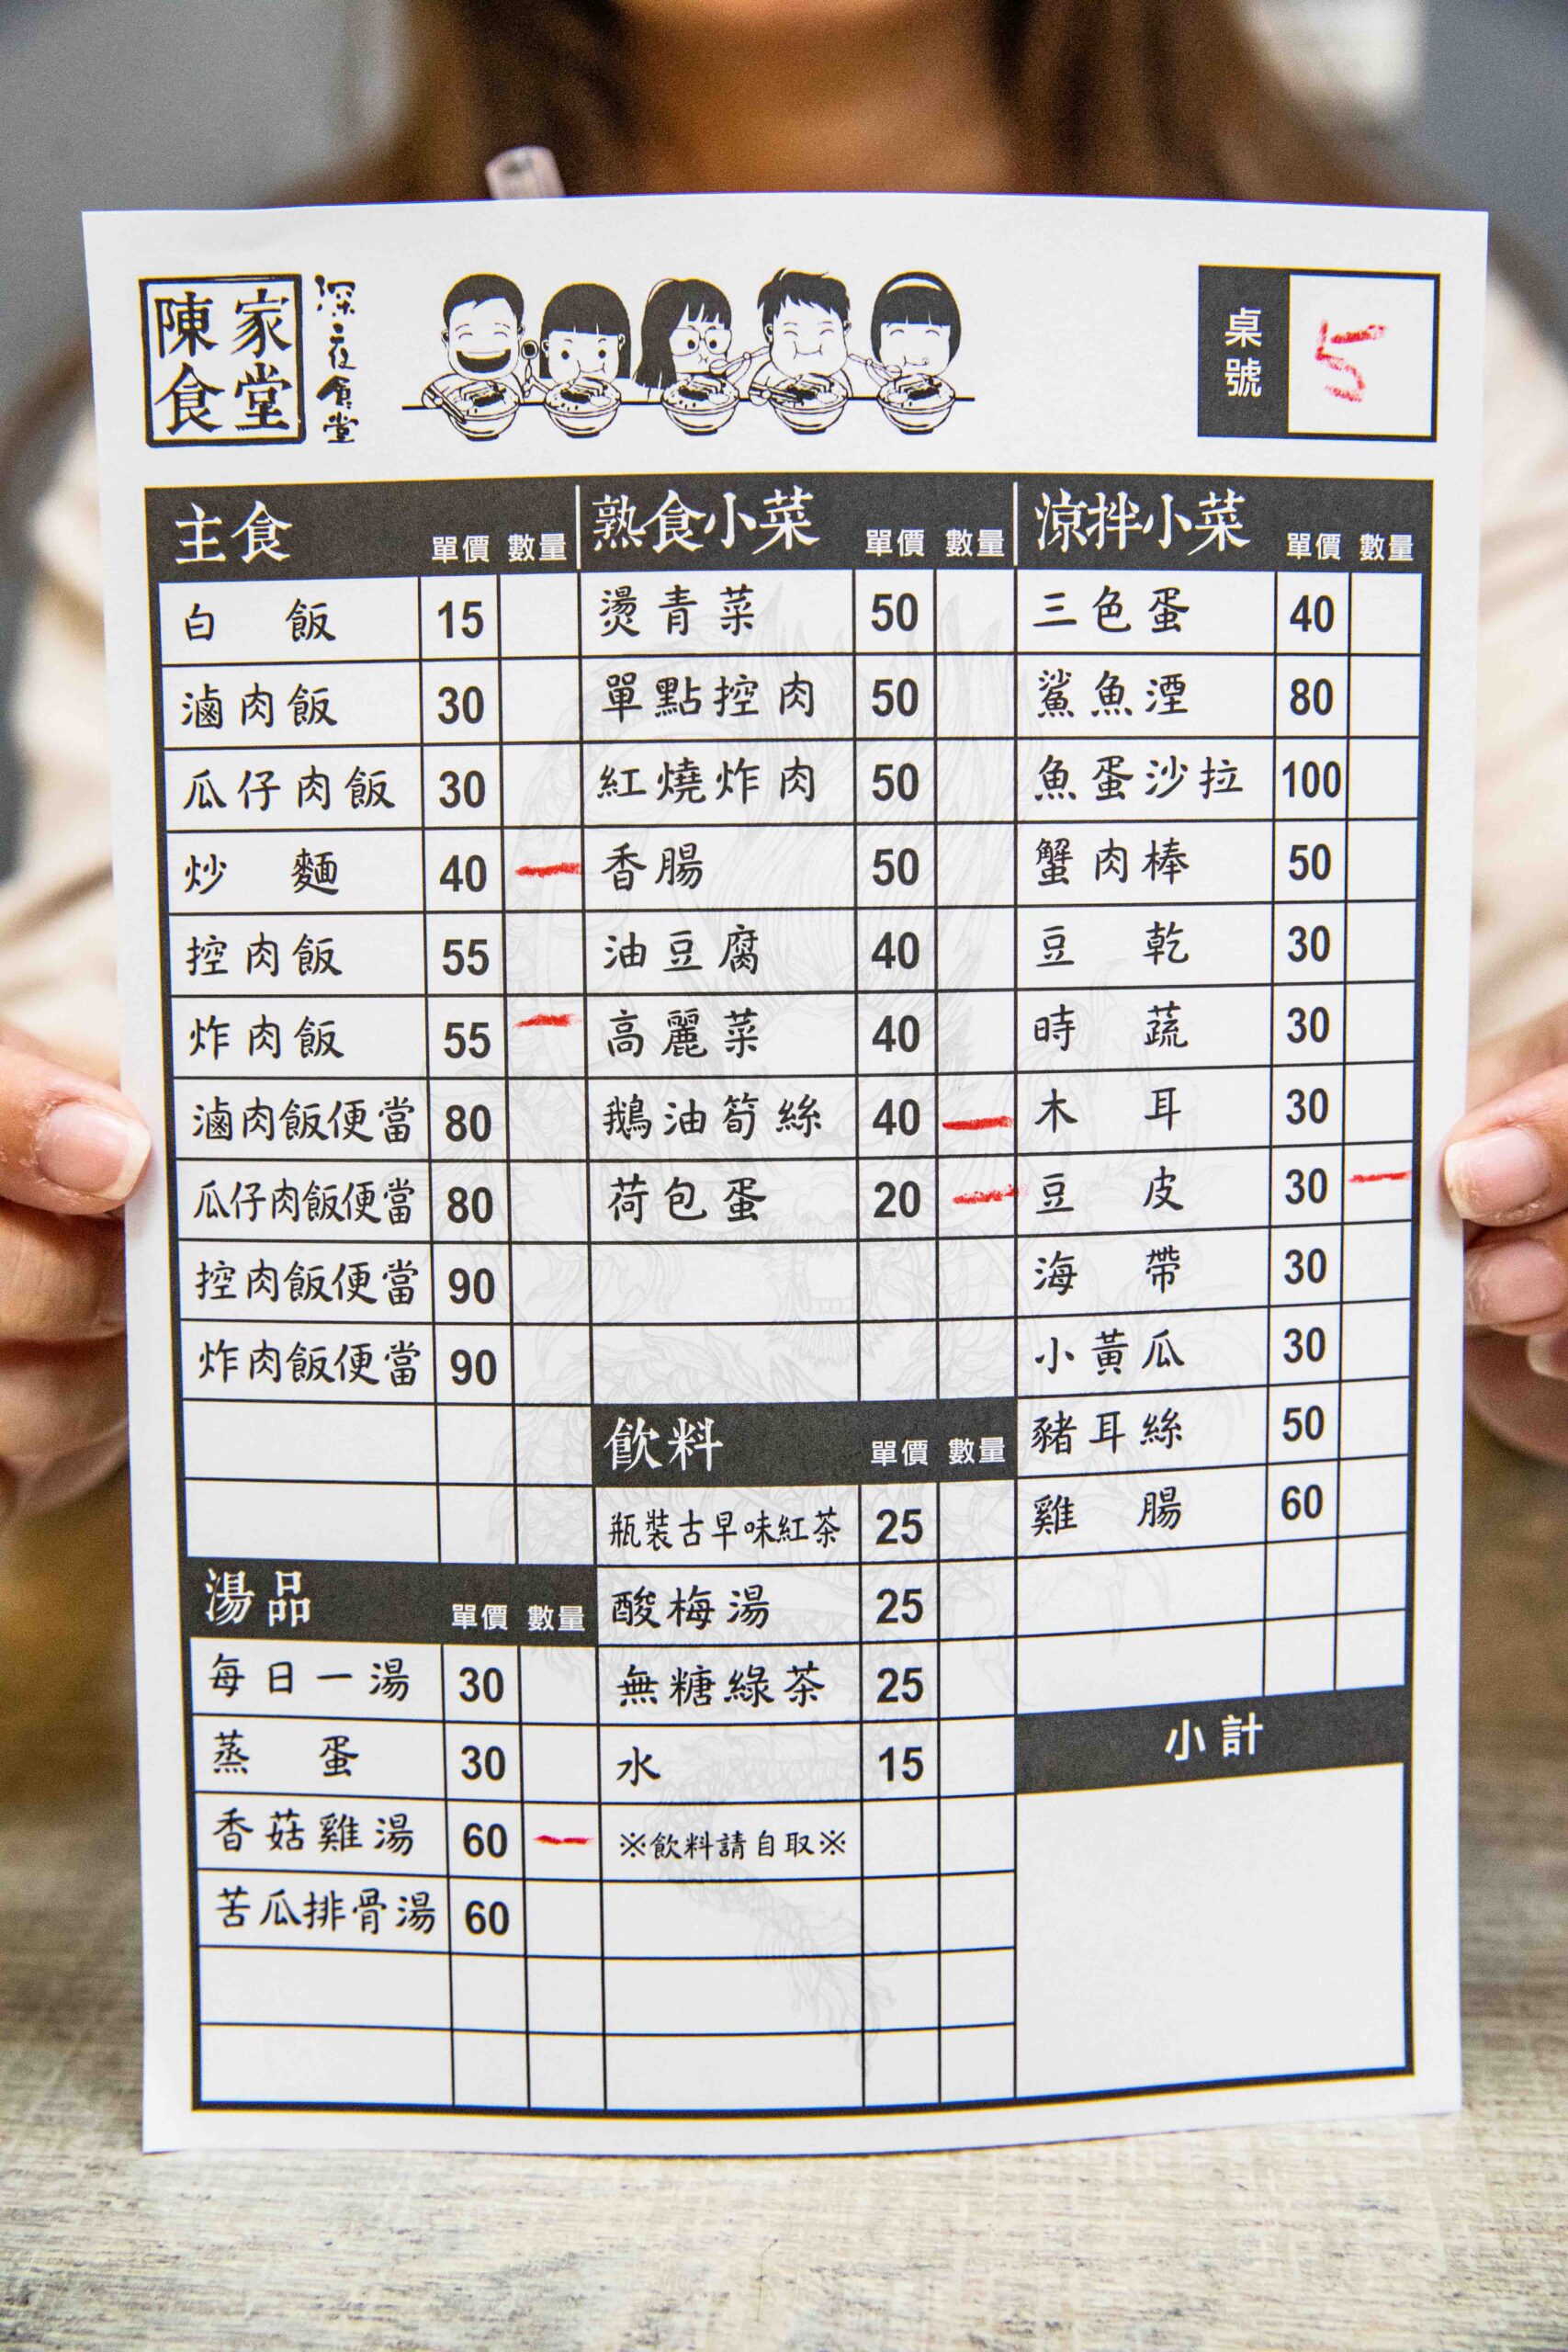 陳家
食堂
深夜食堂
桌號 5
主食 單價 數量
白飯 15
滷肉飯 30
瓜仔肉飯 30
炒麵 40 一
控肉飯 55
炸肉飯 55 一
滷肉飯便當 80
瓜仔肉飯便當 80
控肉飯便當 90
炸肉飯便當 90
湯品 單價 數量
每日一湯 30
蒸蛋 30
香菇雞湯 60 一
苦瓜排骨湯 60
熟食小菜 單價 數量
燙青菜 50
單點控肉 50
紅燒炸肉 50
香腸 50
油豆腐 40
高麗菜 40
鵝油筍絲 40 一
荷包蛋 20 一
飲料 單價 數量
瓶裝古早味紅茶 25
酸梅湯 25
無糖綠茶 25
水 15
※飲料請自取※
涼拌小菜 單價 數量
三色蛋 40
鯊魚湮 80
魚蛋沙拉 100
蟹肉棒 50
豆乾 30
時蔬 30
木耳 30
豆皮 30 一
海帶 30
小黃瓜 30
豬耳絲 50
雞腸 60
小計